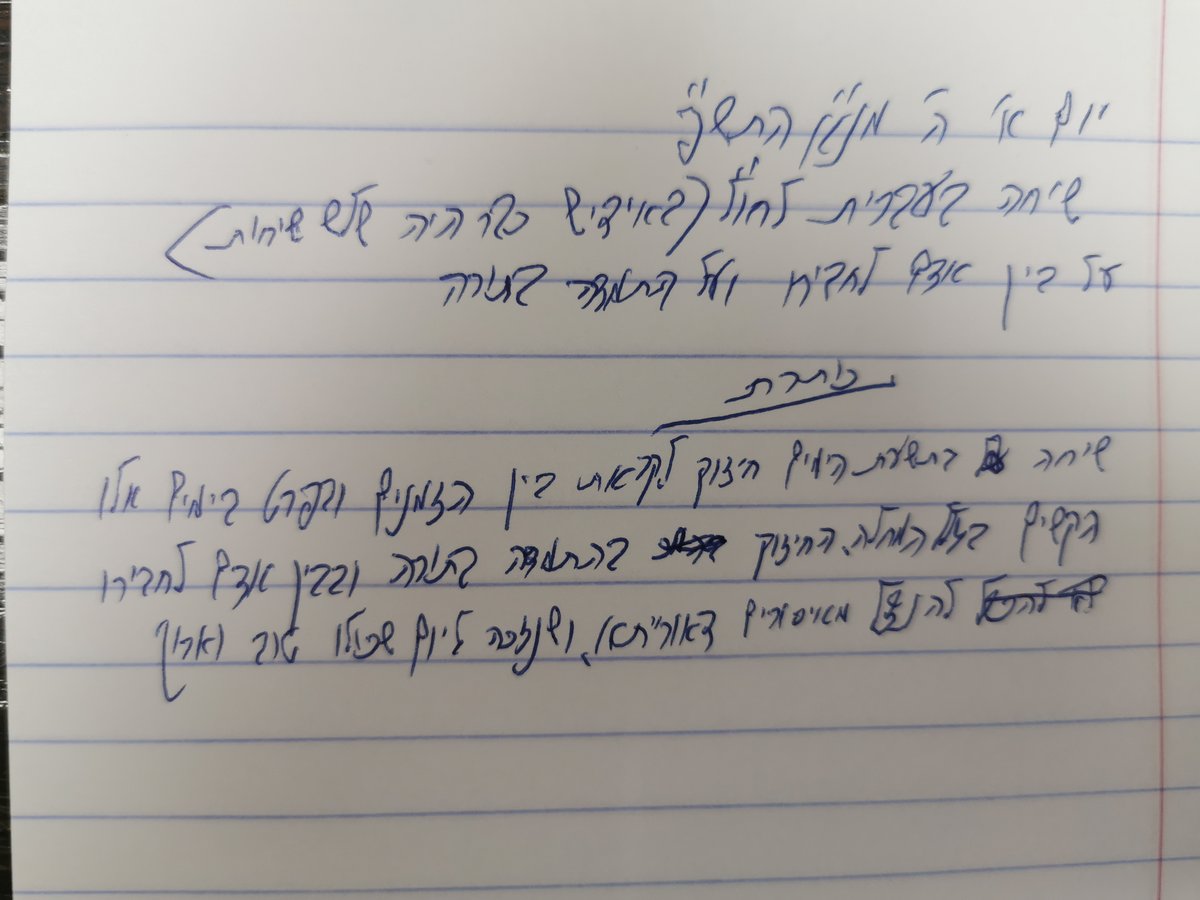 יום א' ה' מנ"א התש"פ
שיחה בעברית לחו"ל (באידיש כבר היה שלש שיחות)
על בין אדם לחבירו ועל התמדה בתורה
כותרת
שיחה בתשעת הימים חיזוק לקראת בין הזמנים ובפרט בימים אלו
הקשים בגלל המחלה. החיזוק בהתמדה בתורה ובבין אדם לחבירו
להנצל מאיסורים דאורייתא, ושנזכה ליום שכולו טוב וארוך